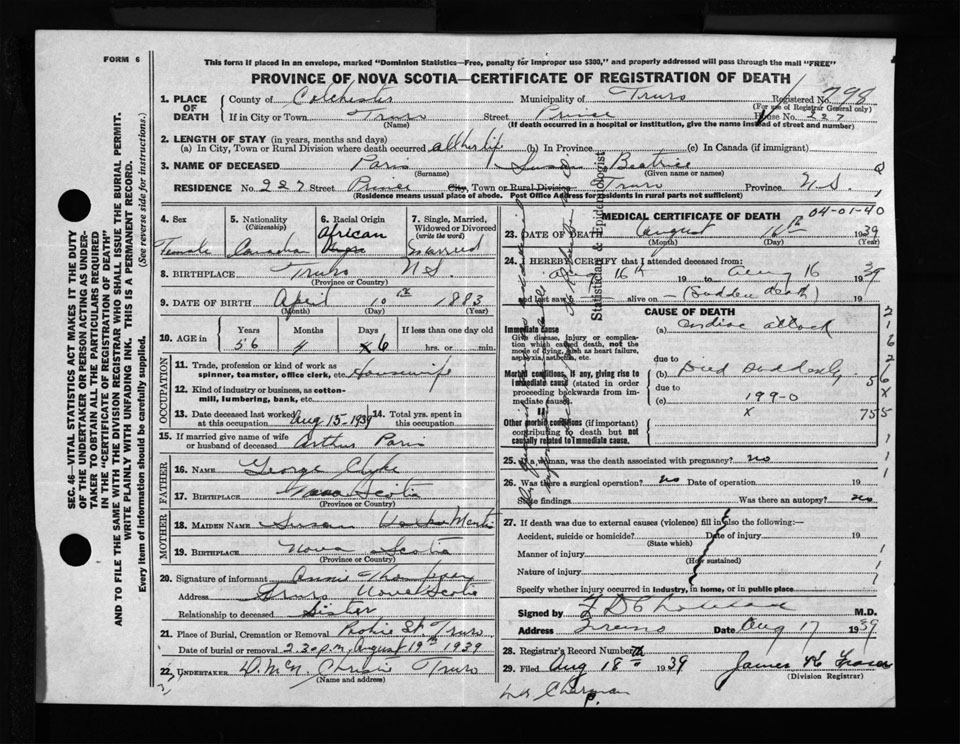 FORM 6
This form if placed in an envelope, marked "Dominion Statistics—Free, penalty for improper use $300," and properly addressed will pass through the mail "FREE"
PROVINCE OF NOVA SCOTIA—CERTIFICATE OF REGISTRATION OF DEATH
1. PLACE OF DEATH
County of Colchester Municipality of Truro Registered No. 798
(For use of Registrar General only)
If in City or Town Truro Street Prince House No. 227
(Name) (If death occurred in a hospital or institution, give the name instead of street and number)
2. LENGTH OF STAY (in years, months and days)
(a) In City, Town or Rural Division where death occurred all her life (b) In Province (c) In Canada (if immigrant)
3. NAME OF DECEASED Paris Susan Beatrice
(Surname) (Given name or names)
RESIDENCE No. 227 Street Prince City, Town or Rural Division Truro Province N.S.
(Residence means usual place of abode. Post Office Address for residents in rural parts not sufficient)
4. Sex
Female
5. Nationality
(Citizenship)
Canadian
6. Racial Origin
African
7. Single, Married, Widowed or Divorced
(write the word)
Married
8. BIRTHPLACE Truro N.S.
(Province or Country)
9. DATE OF BIRTH April 10th 1883
(Month) (Day) (Year)
10. AGE in
Years Months Days If less than one day old
56 4 6 hrs. or min.
OCCUPATION
11. Trade, profession or kind of work as spinner, teamster, office clerk, etc. Housewife
12. Kind of industry or business, as cotton-mill, lumbering, bank, etc.
13. Date deceased last worked at this occupation Aug 15-1939
14. Total yrs. spent in this occupation
15. If married give name of wife or husband of deceased Arthur Paris
FATHER
16. NAME George Clyke
17. BIRTHPLACE Nova Scotia
(Province or Country)
MOTHER
18. MAIDEN NAME Susan
19. BIRTHPLACE Nova Scotia
(Province or Country)
20. Signature of informant Annie
Address Truro Nova Scotia
Relationship to deceased Sister
21. Place of Burial, Cremation or Removal St Truro
Date of burial or removal 2.30 p.m. August 19th 1939
22. UNDERTAKER Christie Truro
(Name and address)
MEDICAL CERTIFICATE OF DEATH
04-01-40
23. DATE OF DEATH August 16th 1939
(Month) (Day) (Year)
24. I HEREBY CERTIFY that I attended deceased from:
Aug 16th 19 to Aug 16 1939
and last saw alive on (Sudden death) 19
CAUSE OF DEATH
Immediate cause
Give disease, injury or complication which caused death, not the mode of dying, such as heart failure, asphyxia, asthenia, etc.
(a) Cardiac attack
due to
Morbid conditions, if any, giving rise to immediate cause (stated in order proceeding backwards from immediate cause).
(b) Died Suddenly
due to
(c) 199-0
x
Other morbid conditions (if important) contributing to death but not causally related to immediate cause.
25. If a woman, was the death associated with pregnancy? no
26. Was there a surgical operation? no Date of operation 19
State findings Was there an autopsy? no
27. If death was due to external causes (violence) fill in also the following:—
Accident, suicide or homicide? Date of injury 19
(State which)
Manner of injury
(How sustained)
Nature of injury
Specify whether injury occurred in industry, in home, or in public place
Signed by M.D.
Address Truro Date Aug 17 1939
28. Registrar's Record Number
29. Filed Aug 18th 1939 James
(Division Registrar)
Chapman
Statistician & Epidemiologist
SEC. 46—VITAL STATISTICS ACT MAKES IT THE DUTY
OF THE UNDERTAKER OR PERSON ACTING AS UNDERTAKER TO OBTAIN ALL THE PARTICULARS REQUIRED
IN THE "CERTIFICATE OF REGISTRATION OF DEATH"
AND TO FILE THE SAME WITH THE DIVISION REGISTRAR WHO SHALL ISSUE THE BURIAL PERMIT.
WRITE PLAINLY WITH UNFADING INK. THIS IS A PERMANENT RECORD.
Every item of information should be carefully supplied. (See reverse side for instructions.)